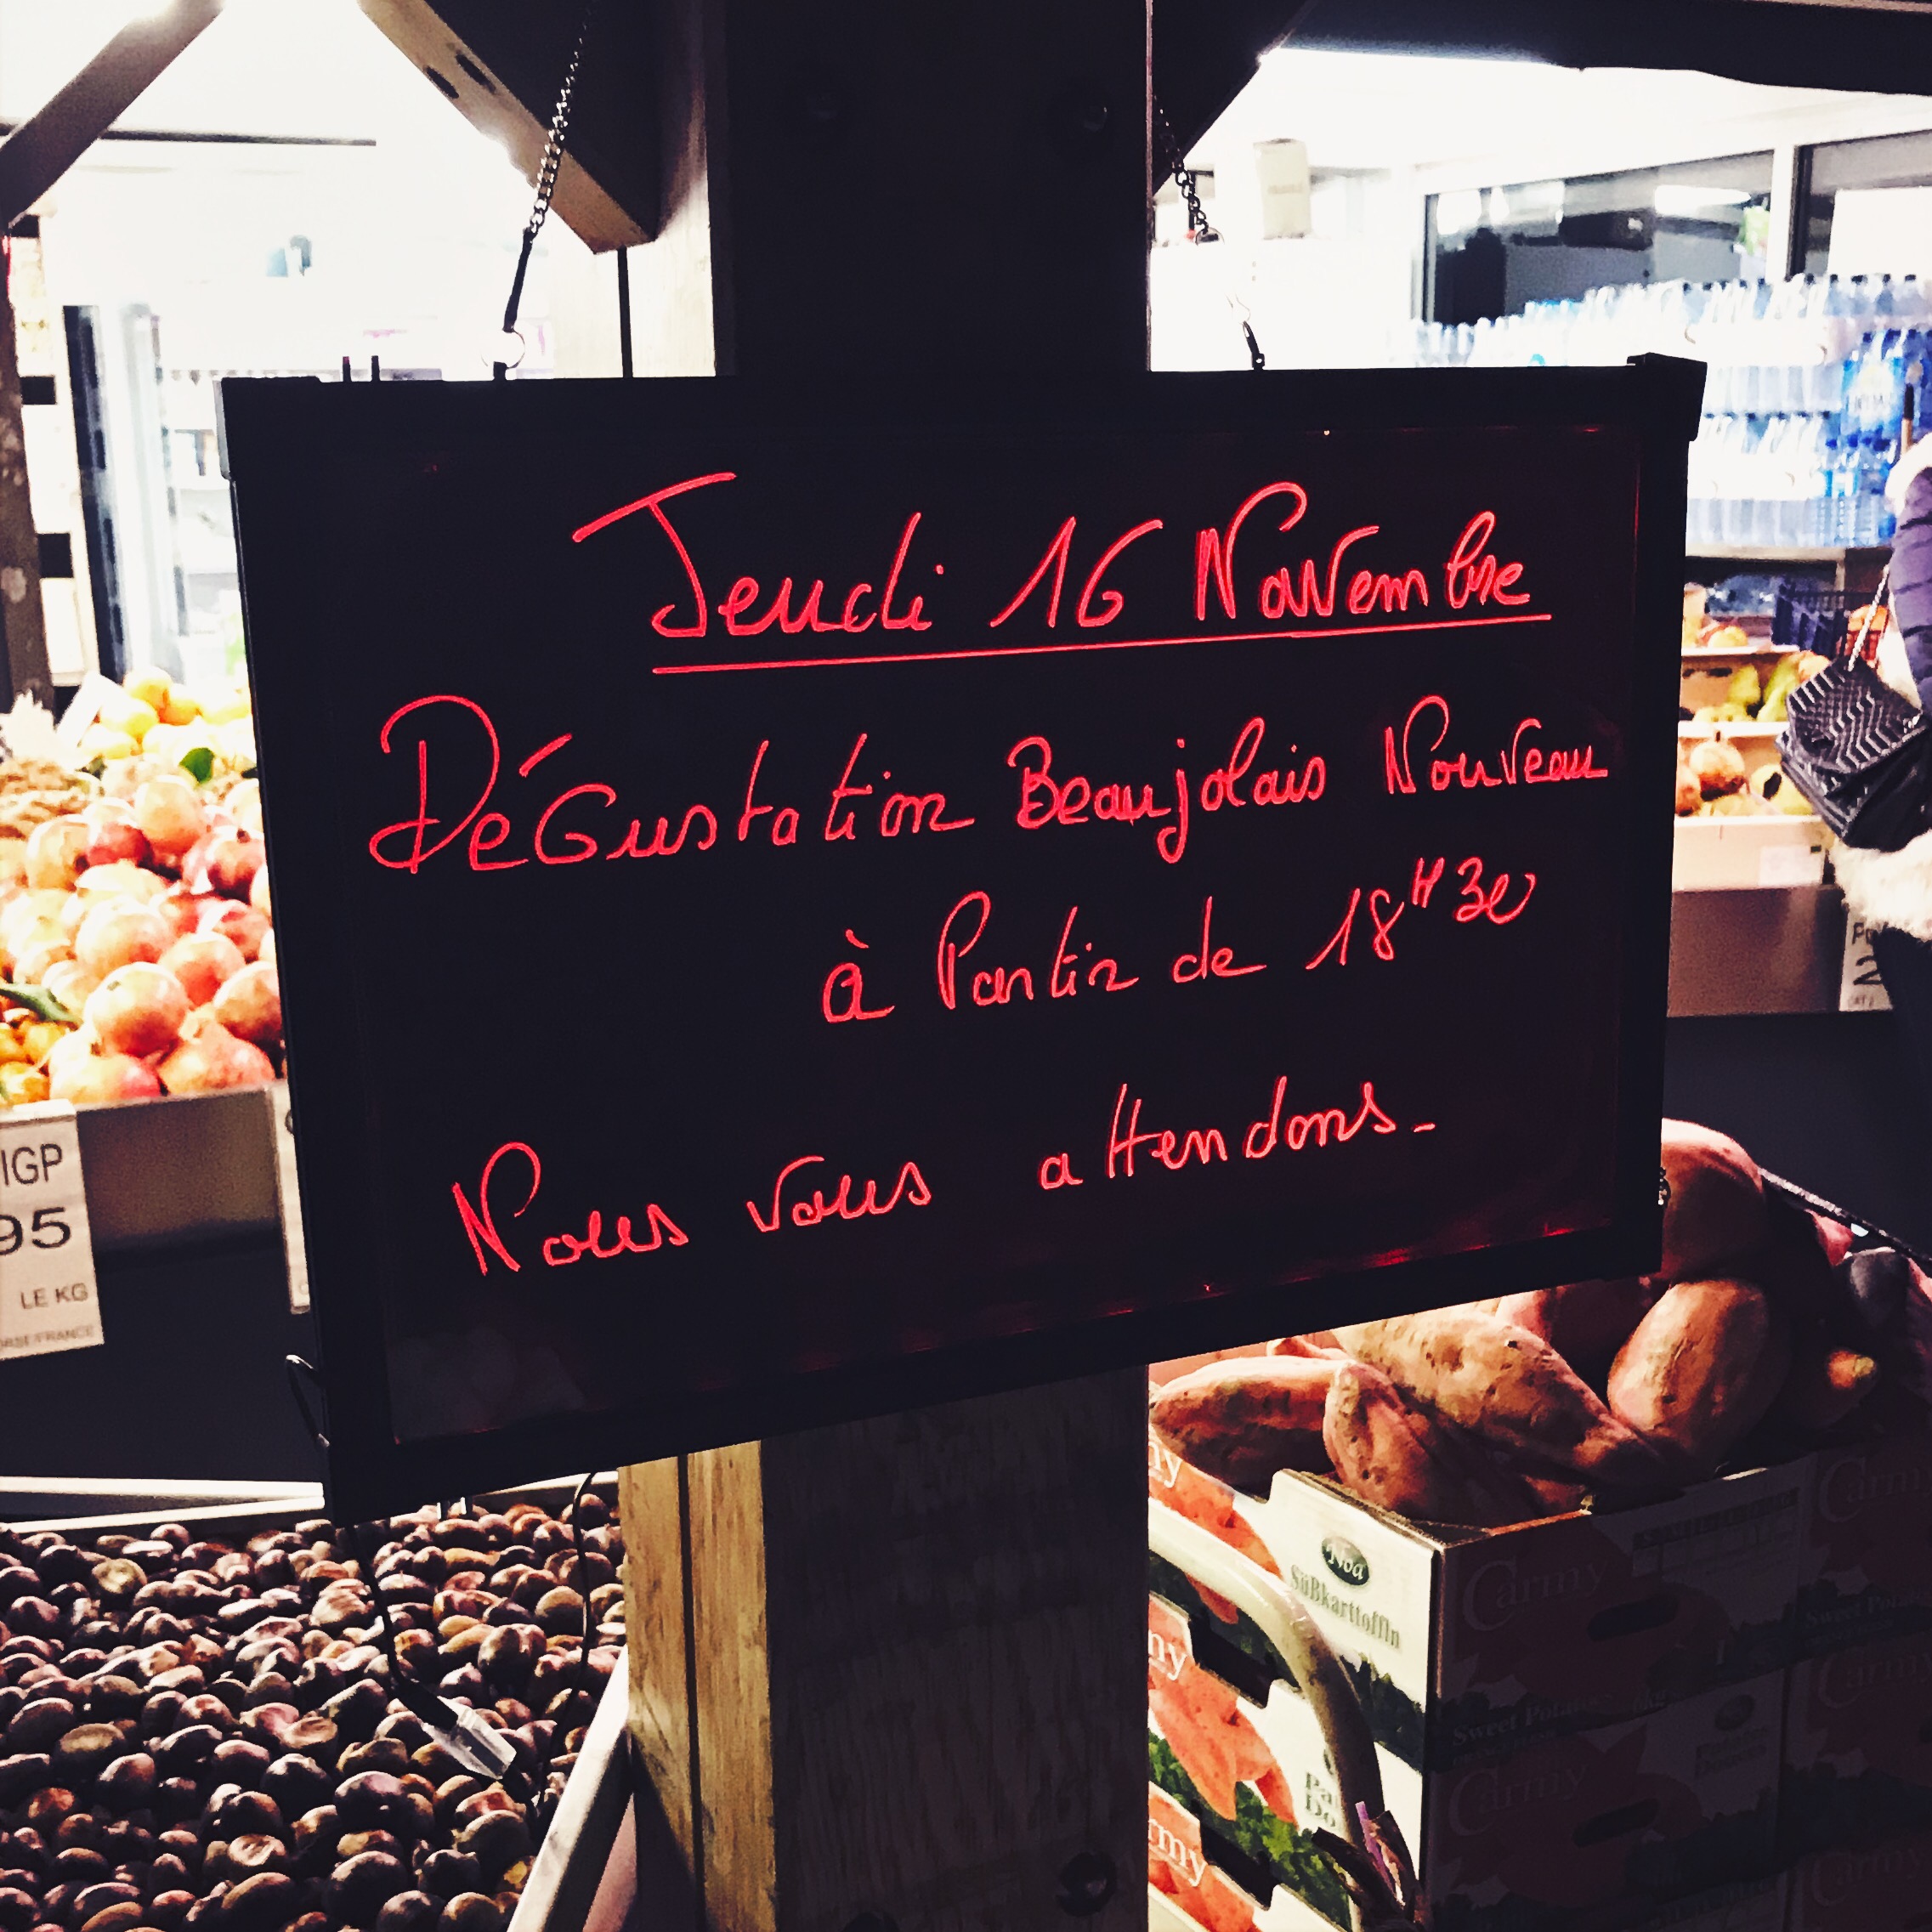 Jeudi 16 Novembre
DéGustation Beaujolais Nouveau
à Partir de 18H30
Nous vous attendons_
IGP
95
LE KG
Noa
Süßkarttoffln
Carmy
Sweet Potatoes
Carmy
Carmy